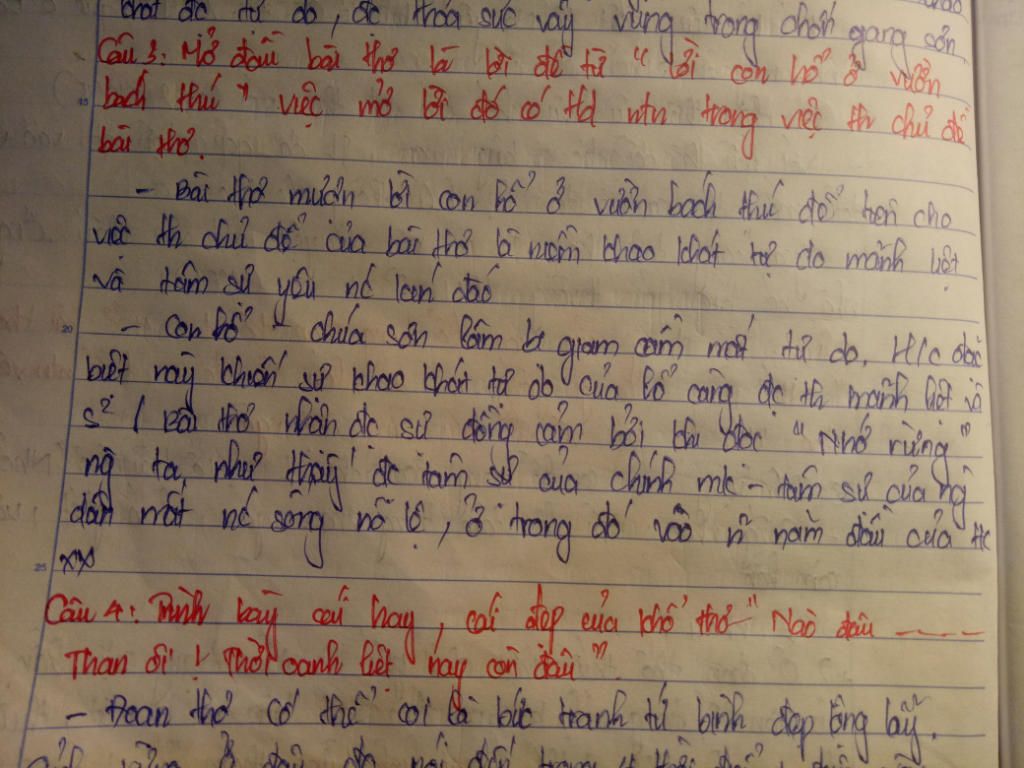 đc tự do, đc thỏa sức vẫy vùng trong chốn giang sơn
Câu 3: Mở đầu bài thơ là lời đề từ " lời con hổ ở vườn
bách thú " việc mở lời đó có td ntn trong việc th chủ đề
bài thơ.
- Bài thơ mượn lời con hổ ở vườn bách thú để tiện cho
việc th chủ đề của bài thơ là niềm khao khát tự do mãnh liệt
và tâm sự yêu nc kín đáo
- Con hổ - chúa sơn lâm bị giam cầm mất tự do. H/c đặc
biệt này khiến sự khao khát tự do của hổ càng đc th mãnh liệt và
s² / Bài thơ nhận đc sự đồng cảm bởi khi đọc " Nhớ rừng "
ng ta, như thấy đc tâm sự của chính mk - tâm sự của ng
dân mất nc sống nô lệ, ở trong đó vào n năm đầu của tk
XX
Câu 4: Trình bày cái hay, cái đẹp của khổ thơ " Nào đâu ----
Than ôi ! Thời oanh liệt nay còn đâu "
- Đoạn thơ có thể coi là bức tranh tứ bình đẹp lộng lẫy.